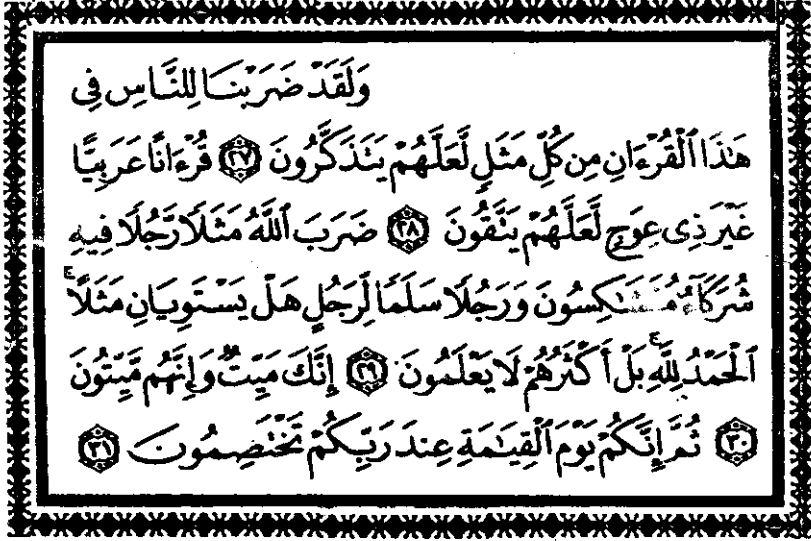 وَلَقَدْ ضَرَبْنَا لِلنَّاسِ فِى
هَٰذَا ٱلْقُرْءَانِ مِن كُلِّ مَثَلٍ لَّعَلَّهُمْ يَتَذَكَّرُونَ ﴿٢٧﴾ قُرْءَانًا عَرَبِيًّا
غَيْرَ ذِى عِوَجٍ لَّعَلَّهُمْ يَتَّقُونَ ﴿٢٨﴾ ضَرَبَ ٱللَّهُ مَثَلًا رَّجُلًا فِيهِ
شُرَكَآءُ مُتَشَٰكِسُونَ وَرَجُلًا سَلَمًا لِّرَجُلٍ هَلْ يَسْتَوِيَانِ مَثَلًا ۚ
ٱلْحَمْدُ لِلَّهِ ۚ بَلْ أَكْثَرُهُمْ لَا يَعْلَمُونَ ﴿٢٩﴾ إِنَّكَ مَيِّتٌ وَإِنَّهُم مَّيِّتُونَ
﴿٣٠﴾ ثُمَّ إِنَّكُمْ يَوْمَ ٱلْقِيَٰمَةِ عِندَ رَبِّكُمْ تَخْتَصِمُونَ ﴿٣١﴾